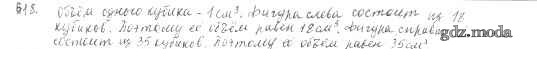 618. Объём одного кубика - 1см³. Фигура слева состоит из 18
кубиков. Поэтому её объём равен 18см³. Фигура справа
состоит из 35 кубиков. Поэтому её объём равен 35см³
gdz.moda